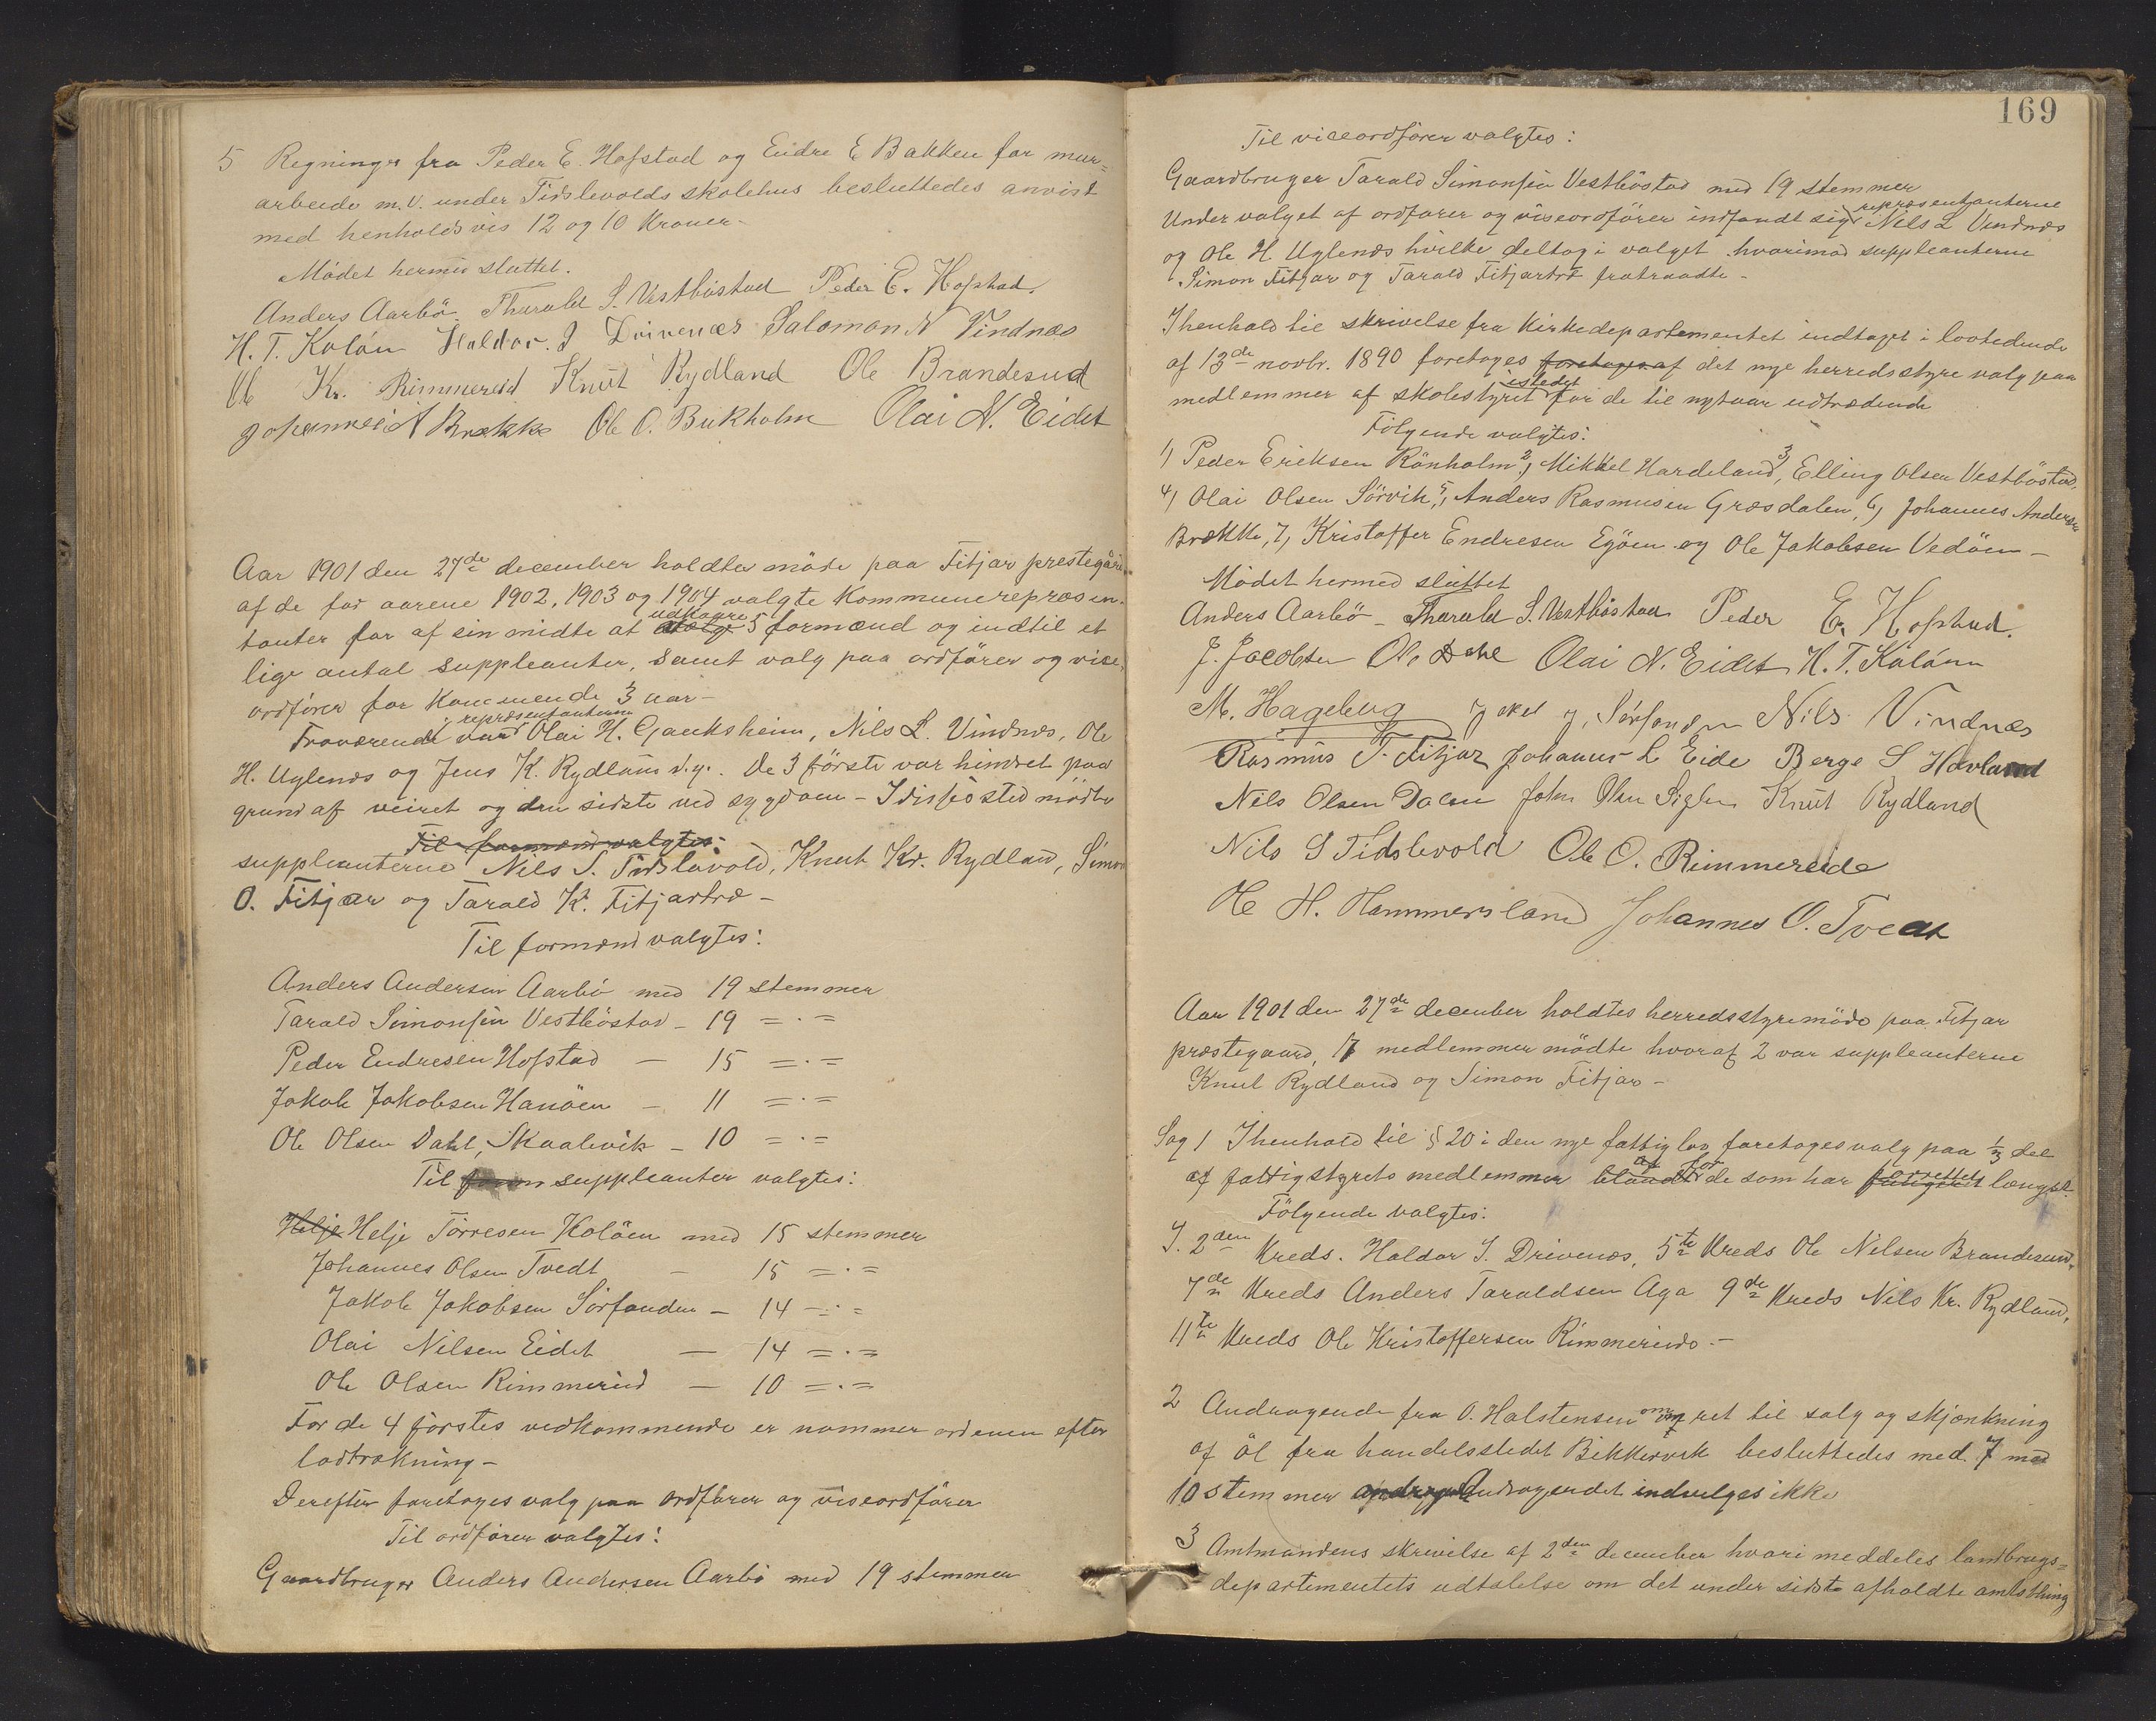 5 Regninger fra Peder E. Hofstad og Endre E Bakken for mur=
arbeide m.v. under Tidslevolds skolehus besluttedes anvist
med henholdsvis 12 og 10 Kroner-
Mödet hermed sluttet.
Anders Aarbö. Tharald S. Vestböstad Peder E. Hofstad.
H. T. Kolöen Haldor. J Drivenæs Salomon N Vindnæs
Ole Kr. Rimmereid Knut Rydland Ole Brandesund
Johannes A Brække Ole O. Bukholm Olai N. Eidet
Aar 1901 den 27de december holdtes möde paa Fitjar prestegård
af de for aarene 1902, 1903 og 1904 valgte Kommunerepræsen-
tanter for af sin midte at udkaare 5 formænd og indtil et
lige antal suppleanter, samt valg paa ordförer og vise-
ordförer for kommende 3 aar-
repræsentanterne
Fraværende var Olai H. Gauksheim, Nils L. Vindnæs, Ole
H. Uglenæs og Jens K. Rydland d.y. De 3 förste var hindret paa
grund af veiret og den sidste ved sygdom - I disses sted mödte
Til formænd valgtes:
suppleanterne Nils S. Tidslevold, Knut Kr. Rydland, Simon
O. Fitjar og Tarald K. Fitjartræ -
Til formænd valgtes:
Anders Andersen Aarbö med 19 stemmer
Tarald Simonsen Vestböstad - 19 =.=
Peder Endresen Hofstad - 15 =.=
Jakob Jakobsen Hanöen - 11 =.=
Ole Olsen Dahl, Skaalevik - 10 =.=
Til suppleanter valgtes:
Helje Helje Törresen Kolöen med 15 stemmer
Johannes Olsen Tvedt - 15 =.=
Jakob Jakobsen Sörfonden - 14 =.=
Olai Nilsen Eidet - 14 =.=
Ole Olsen Rimmereid - 10 =.=
For de 4 förstes vedkommende er nommer ordenen efter
lodtrækning -
Derefter foretoges valg paa ordförer og viseordförer
Til ordförer valgtes:
Gaardbruger Anders Andersen Aarbö med 19 stemmer
169
Til viceordförer valgtes:
Gaardbruger Tarald Simonsen Vestböstad med 19 stemmer
repræsentanterne
Under valget af ordförer og viseordförer indfandt sig Nils L Vindnæs
og Ole H. Uglenæs hvilke deltog i valget hvorimod suppleanterne
Simon Fitjar og Tarald Fitjartræ fratraadte -
I henhold til skrivelse fra Kirkedepartementet indtaget i lovtidende
af 13de novbr. 1890 foretoges foretoges af det nye herredsstyre valg paa
medlemmer af skolestyret istedet for de til nytaar udtrædende
Fölgende valgtes:
1, Peder Eriksen Rönholm 2, Mikkel Hardeland 3, Elling Olsen Vestböstad,
4, Olai Olsen Sörvik, 5, Anders Rasmusen Græsdalen, 6, Johannes Andersen
Brække, 7, Kristoffer Endresen Egöen og Ole Jakobsen Vedöen -
Mödet hermed sluttet
Anders Aarbö - Tharald S. Vestböstad Peder E. Hofstad.
J. Jacobsen Ole Dahl Olai N. Eidet H. T. Kolöen
M. Hageberg Jakob J. Sörfonden Nils Vindnæs
Rasmus T. Fitjar Johannes L Eide Berge S Hovland
Nils Olsen Dalen John Olsen Knut Rydland
Nils S Tidslevold Ole O. Rimmereide
Ole H. Hammersland Johannes O. Tvedt
Aar 1901 den 27de december holdtes herredsstyremöde paa Fitjar
præstegaard, 17 medlemmer mödte hvoraf 2 var suppleanterne
Knut Rydland og Simon Fitjar -
Sag 1 I henhold til § 20 i den nye fattiglov foretoges valg paa 1/3 del
af fattigstyrets medlemmer blandt af for de som har forrettet længst.
Fölgende valgtes:
I. 2den Kreds. Haldor J. Drivenæs, 5te Kreds Ole Nilsen Brandesund,
7de Kreds Anders Taraldsen Aga 9de Kreds Nils Kr. Rydland,
11te Kreds Ole Kristoffersen Rimmereide -
2 Andragende fra O. Halstensen om ret til salg og skjænkning
af öl fra handelsstedet Bekkervik besluttedes med 7 mod
10 stemmer Andragendet indvilges ikke
3 Amtmandens skrivelse af 2den december hvori meddeles landbrugs=
departementets udtalelse om det under sidste afholdte amtsthing